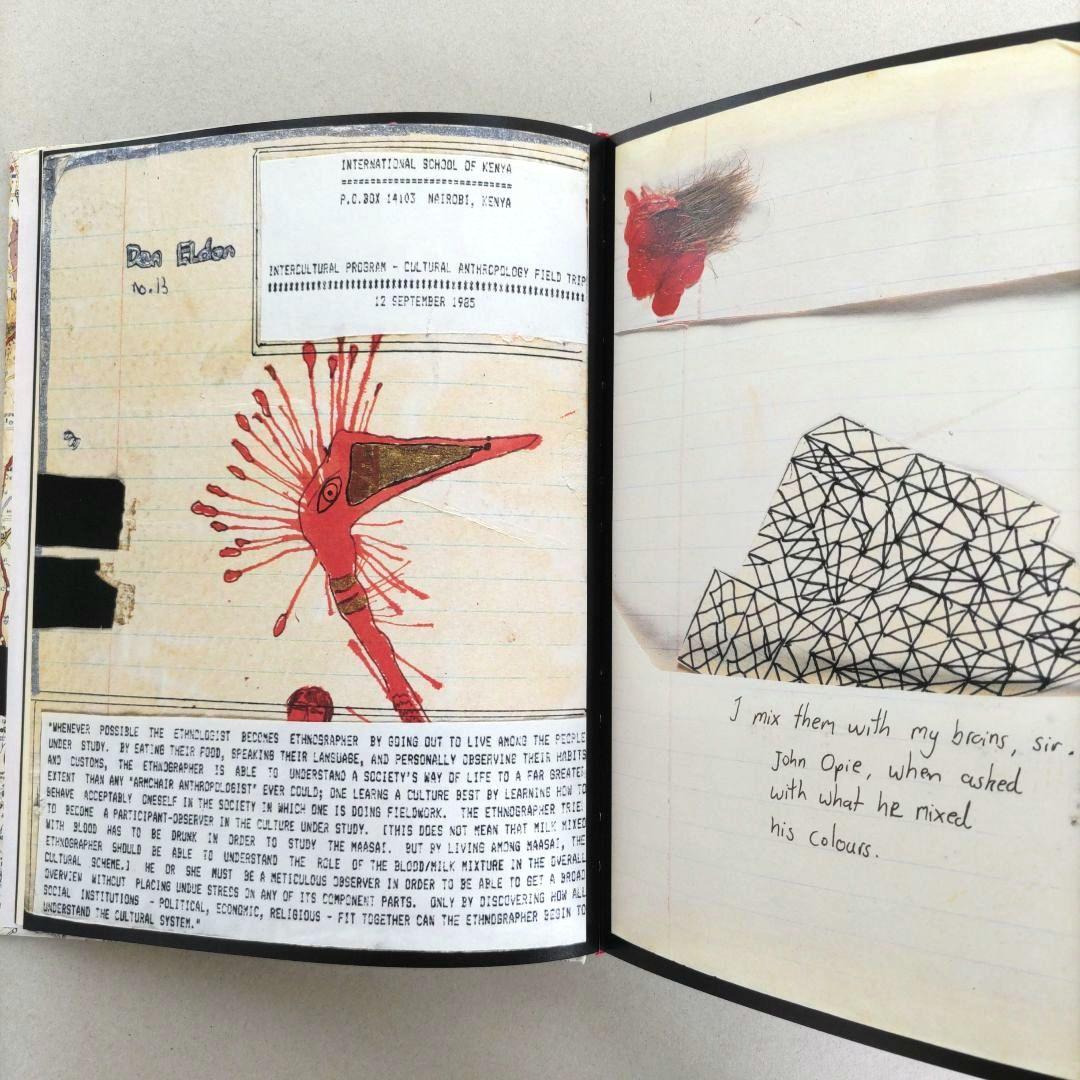 INTERNATIONAL SCHOOL OF KENYA
P.O.BOX 14103 NAIROBI, KENYA
Dan Eldon
no.13
INTERCULTURAL PROGRAM - CULTURAL ANTHROPOLOGY FIELD TRIP
12 SEPTEMBER 1985
"WHENEVER POSSIBLE THE ETHNOLOGIST BECOMES ETHNOGRAPHER BY GOING OUT TO LIVE AMONG THE PEOPLE
UNDER STUDY. BY EATING THEIR FOOD, SPEAKING THEIR LANGUAGE, AND PERSONALLY OBSERVING THEIR HABITS
AND CUSTOMS, THE ETHNOGRAPHER IS ABLE TO UNDERSTAND A SOCIETY'S WAY OF LIFE TO A FAR GREATER
EXTENT THAN ANY "ARMCHAIR ANTHROPOLOGIST" EVER COULD; ONE LEARNS A CULTURE BEST BY LEARNING HOW TO
BEHAVE ACCEPTABLY ONESELF IN THE SOCIETY IN WHICH ONE IS DOING FIELDWORK. THE ETHNOGRAPHER TRIES
TO BECOME A PARTICIPANT-OBSERVER IN THE CULTURE UNDER STUDY. [THIS DOES NOT MEAN THAT MILK MIXED
WITH BLOOD HAS TO BE DRUNK IN ORDER TO STUDY THE MAASAI. BUT BY LIVING AMONG MAASAI, THE
ETHNOGRAPHER SHOULD BE ABLE TO UNDERSTAND THE ROLE OF THE BLOOD/MILK MIXTURE IN THE OVERALL
CULTURAL SCHEME.] HE OR SHE MUST BE A METICULOUS OBSERVER IN ORDER TO BE ABLE TO GET A BROAD
OVERVIEW WITHOUT PLACING UNDUE STRESS ON ANY OF ITS COMPONENT PARTS. ONLY BY DISCOVERING HOW ALL
SOCIAL INSTITUTIONS - POLITICAL, ECONOMIC, RELIGIOUS - FIT TOGETHER CAN THE ETHNOGRAPHER BEGIN TO
UNDERSTAND THE CULTURAL SYSTEM."
I mix them with my brains, sir.
John Opie, when asked
with what he mixed
his colours.